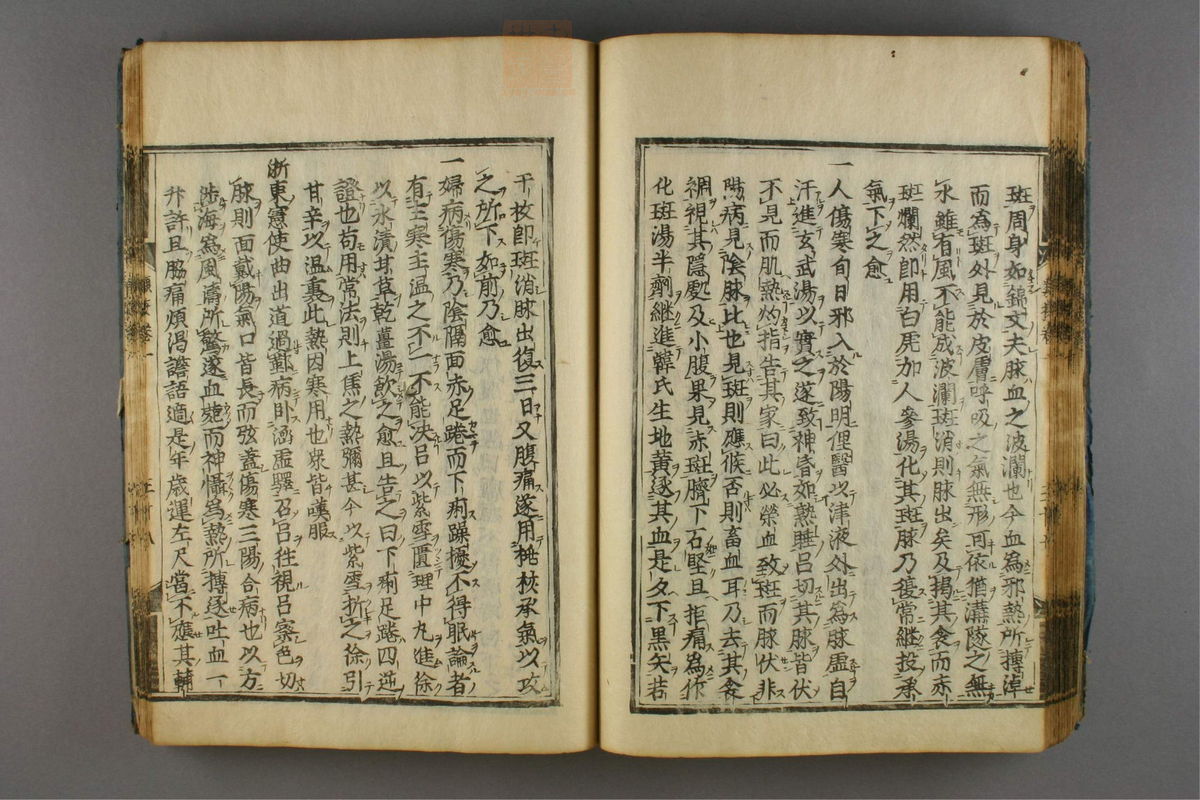 斑周身如錦文夫脉血之波瀾也今血為邪熱所搏淖
而為斑外見於皮膚呼吸之氣無形可依猶溝隧之無
水雖有風不能成波瀾斑消則脉出矣及揭其衾而赤
斑爛然即用白虎加人參湯化其斑脉乃復常繼投承
氣下之愈
一人傷寒旬日邪入於陽明俚醫以津液外出為脉虛自
汗進玄武湯以實之遂致神昏如熟睡呂切其脉皆伏
不見而肌熱灼指告其家曰此必榮血致斑而脉伏非
陽病見陰脉比也見斑則應候否則畜血耳乃去其衾
裯視其隱處及小腹果見赤斑臍下石堅且拒痛為作
化斑湯半劑繼進韓氏生地黃逐其血是夕下黑矢若
干枚即斑消脉出復三日又腹痛遂用桃核承氣以攻
之所下如前乃愈
一婦病傷寒乃陰隔面赤足踡而下痢躁擾不得眠論者
有主寒主溫之不一不能決呂以紫雪匱理中丸進徐
以水漬甘草乾薑湯飲之愈且告之曰下痢足踡四逆
證也苟用常法則上焦之熱彌甚今以紫雪折之徐引
甘辛以溫裏此熱因寒用也眾皆嘆服
浙東憲使曲出道過鄞病臥涵虛驛召呂往視呂察色切
脉則面戴陽氣口皆長而弦蓋傷寒三陽合病也以方
涉海為風濤所驚遂血菀而神懾為熱所搏逐吐血一
升許且脇痛煩渴譫語適是年歲運左尺當不應其輔